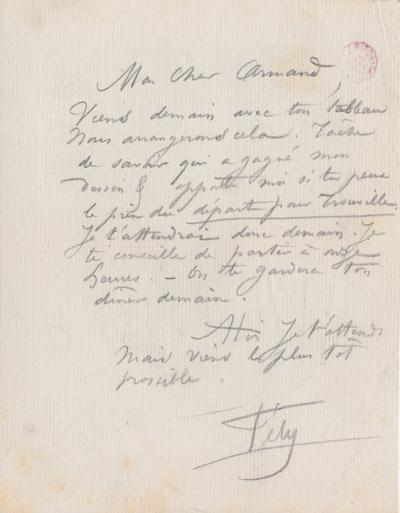 Mon cher Armand,
Viens demain avec ton tableau
Nous arrangerons cela. Tâche
de savoir qui a gagné mon
dessin & apporte moi si tu peux
le prix du départ pour Trouville.
Je t'attendrai donc demain. Je
te conseille de partir à onze
heures. — On te gardera ton
dîner demain.
Je t'attends
Mais viens le plus tôt
possible.